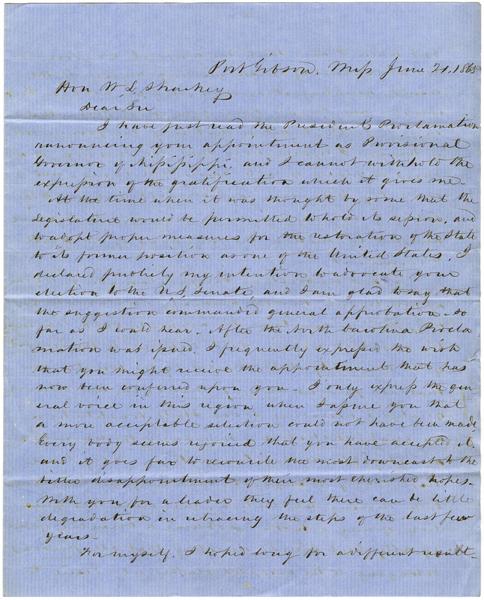 Port Gibson, Miss June 21, 1865
Hon W L Sharkey
Dear Sir
I have just read the President's Proclamation
announcing your appointment as Provisional
Governor of Mississippi, and I cannot withhold the
expression of the gratification which it gives me.
At the time when it was thought by some that the
Legislature would be permitted to hold its session, and
to adopt proper measures for the restoration of the State
to its former position as one of the United States, I
declared publicly my intention to advocate your
election to the U.S. Senate, and I am glad to say that
the suggestion commanded general approbation, so
far as I could hear. After the North Carolina Procla
mation was issued, I frequently expressed the wish
that you might receive the appointment that has
now been conferred upon you. I only express the gen
eral voice in this region when I assure you that
a more acceptable selection could not have been made
Every body seems rejoiced that you have accepted it,
and it goes far to reconcile the most downcast to the
bitter disappointment of their most cherished hopes.
With you for a leader they feel there can be little
degradation in retracing the steps of the last few
years.
For myself, I hoped long for a different result—